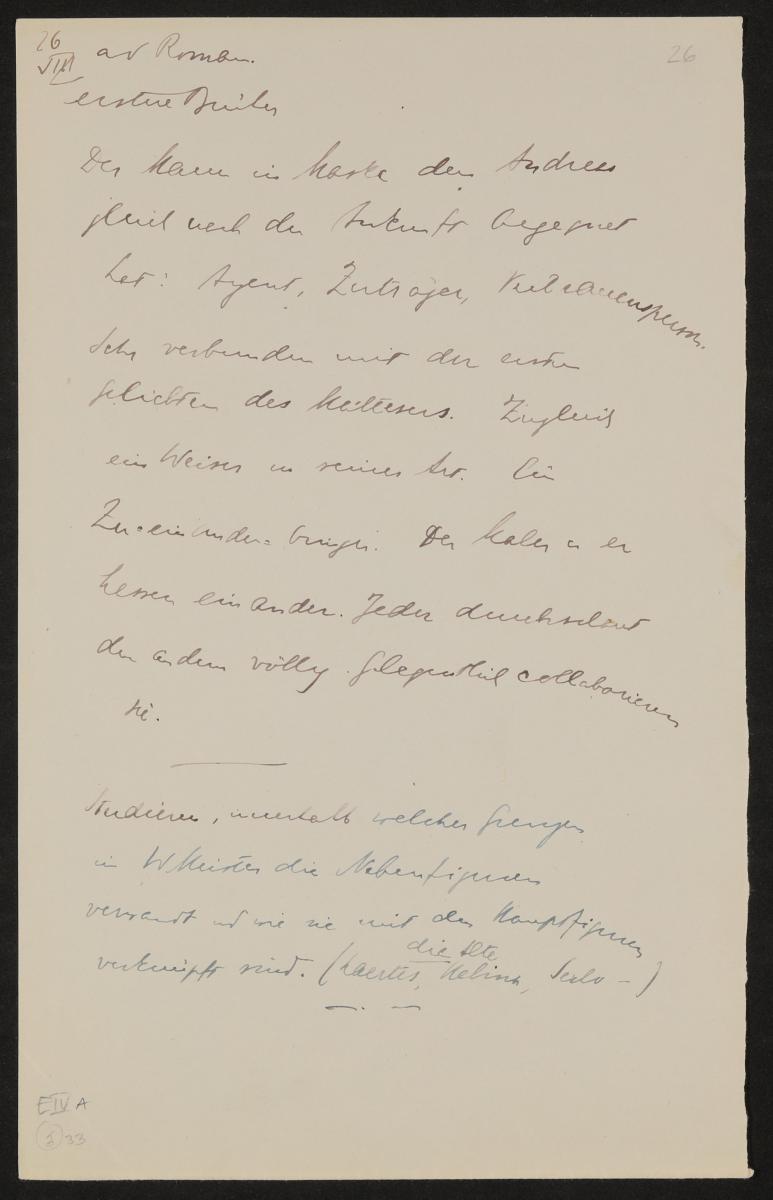 26
VIII
ad Roman.
26
erstes Buch
Der Mann in Maske dem Andreas
gleich nach der Ankunft begegnet
hat: Agent, Zuträger, Vertrauensperson.
Sehr verbunden mit der ersten
Geliebten des Maltesers. Zugleich
ein Weiser in seiner Art. Ein
Zu-einander-bringer. Der Maler u er
hassen einander. Jeder durchschaut
den andern völlig. Gelegentlich collaborieren
sie.
Studieren, innerhalb welcher Grenzen
in W Meister die Nebenfiguren
verwandt und wie sie mit den Hauptfiguren
die Alte
verknüpft sind. (Laertes, Melina, Serlo –)
E IV A
33